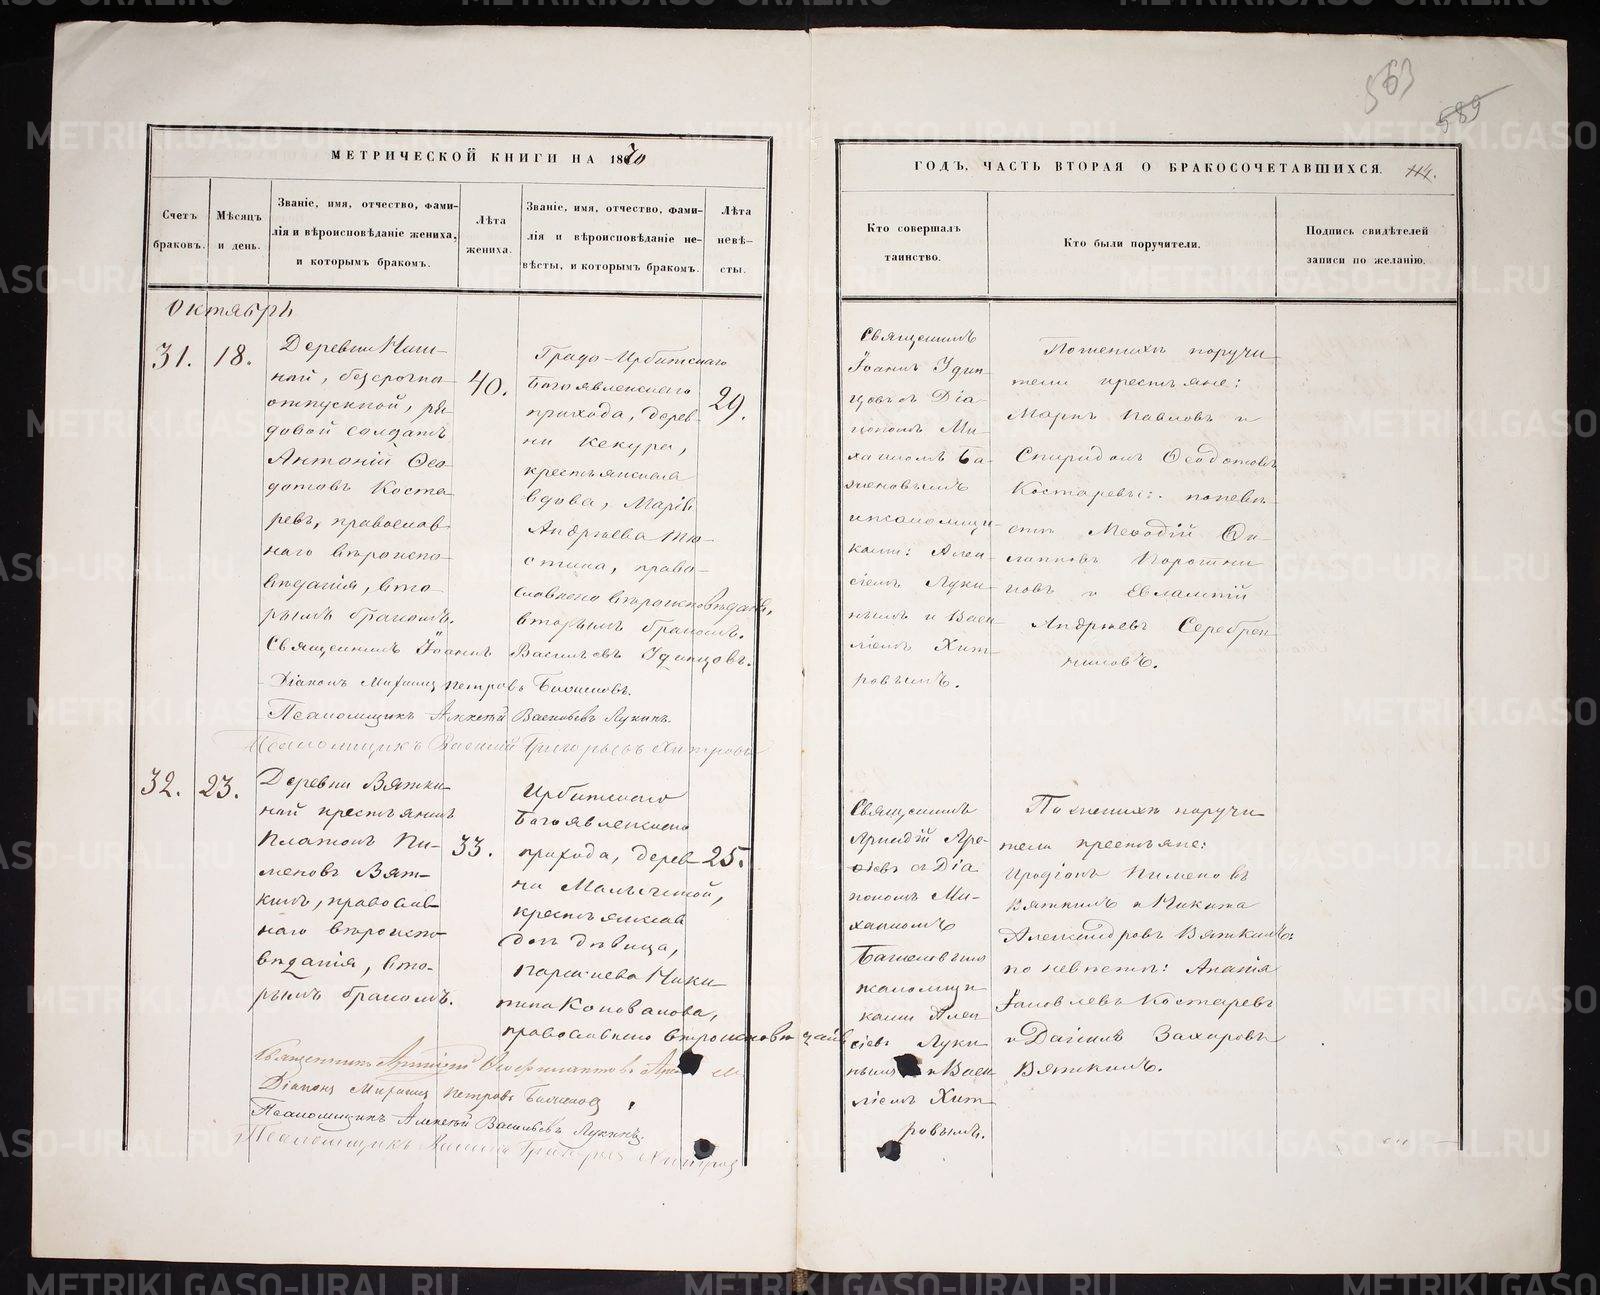 563
589
МЕТРИЧЕСКОЙ КНИГИ НА 1870
ГОДЪ, ЧАСТЬ ВТОРАЯ О БРАКОСОЧЕТАВШИХСЯ. 114.
Счетъ
браковъ.
Мѣсяцъ
и день.
Званіе, имя, отчество, фами-
лія и вѣроисповѣданіе жениха,
и которымъ бракомъ.
Лѣта
жениха.
Званіе, имя, отчество, фами-
лія и вѣроисповѣданіе не-
вѣсты, и которымъ бракомъ.
Лѣта
невѣ-
сты.
Кто совершалъ
таинство.
Кто были поручители.
Подпись свидѣтелей
записи по желанію.
Октябрь
31.
18.
Деревни
ной, безсрочно
отпускной, ря-
довой солдатъ
Антоній Ѳео-
дотовъ Коста-
ревъ, православ-
наго вѣроиспо-
вѣданія, вто-
рымъ бракомъ.
40.
Градо-Ирбитскаго
Богоявленскаго
прихода, дерев-
ни Кекура,
крестьянская
вдова, Марія
Андреева
православнаго вѣроисповѣданія,
вторымъ бракомъ.
29.
Священникъ
Іоаннъ Удин-
цовъ съ Діа-
кономъ Ми-
хаиломъ Ба-
женовымъ
и псаломщи-
ками: Алек-
сіемъ Луки-
нымъ и Васи-
ліемъ Хит-
ровымъ.
По женихѣ поручи-
тели крестьяне:
Маркъ Павловъ и
Спиридонъ Ѳеодотовъ
Костаревы: по невѣ-
стѣ Меѳодій Фи-
липповъ Коротни-
ковъ и Евлампій
Андреевъ Серебрен-
никовъ.
Священникъ Іоаннъ Васильевъ Удинцовъ.
Діаконъ Михаилъ Петровъ Баженовъ.
Псаломщикъ Алексѣй Васильевъ Лукинъ.
Псаломщикъ Василій Григорьевъ Хитровъ
32.
23.
Деревни Вятки-
ной крестьянинъ
Платонъ Пи-
меновъ Вят-
кинъ, православ-
наго вѣроиспо-
вѣданія, вто-
рымъ бракомъ.
33.
Ирбитскаго
Богоявленскаго
прихода, дерев-
ни Мальчиковой,
крестьянская
дѣвица,
Ники-
тина Коновалова,
православнаго вѣроисповѣданія
25.
Священникъ
съ Діа-
кономъ Ми-
хаиломъ
Баженовымъ
псаломщи-
ками Алек-
сіемъ Луки-
нымъ и Васи-
ліемъ Хит-
ровымъ.
По женихѣ поручи-
тели крестьяне:
Иродіонъ Пименовъ
Вяткинъ и Никита
Александровъ Вяткинъ:
по невѣстѣ: Ананія
Іаковлевъ Костаревъ
и Даніилъ Захаровъ
Вяткинъ.
Священникъ
Діаконъ Михаилъ Петровъ Баженовъ
Псаломщикъ Алексѣй Васильевъ Лукинъ.
Псаломщикъ Василій Григорьевъ Хитровъ
METRIKI.GASO-URAL.RU